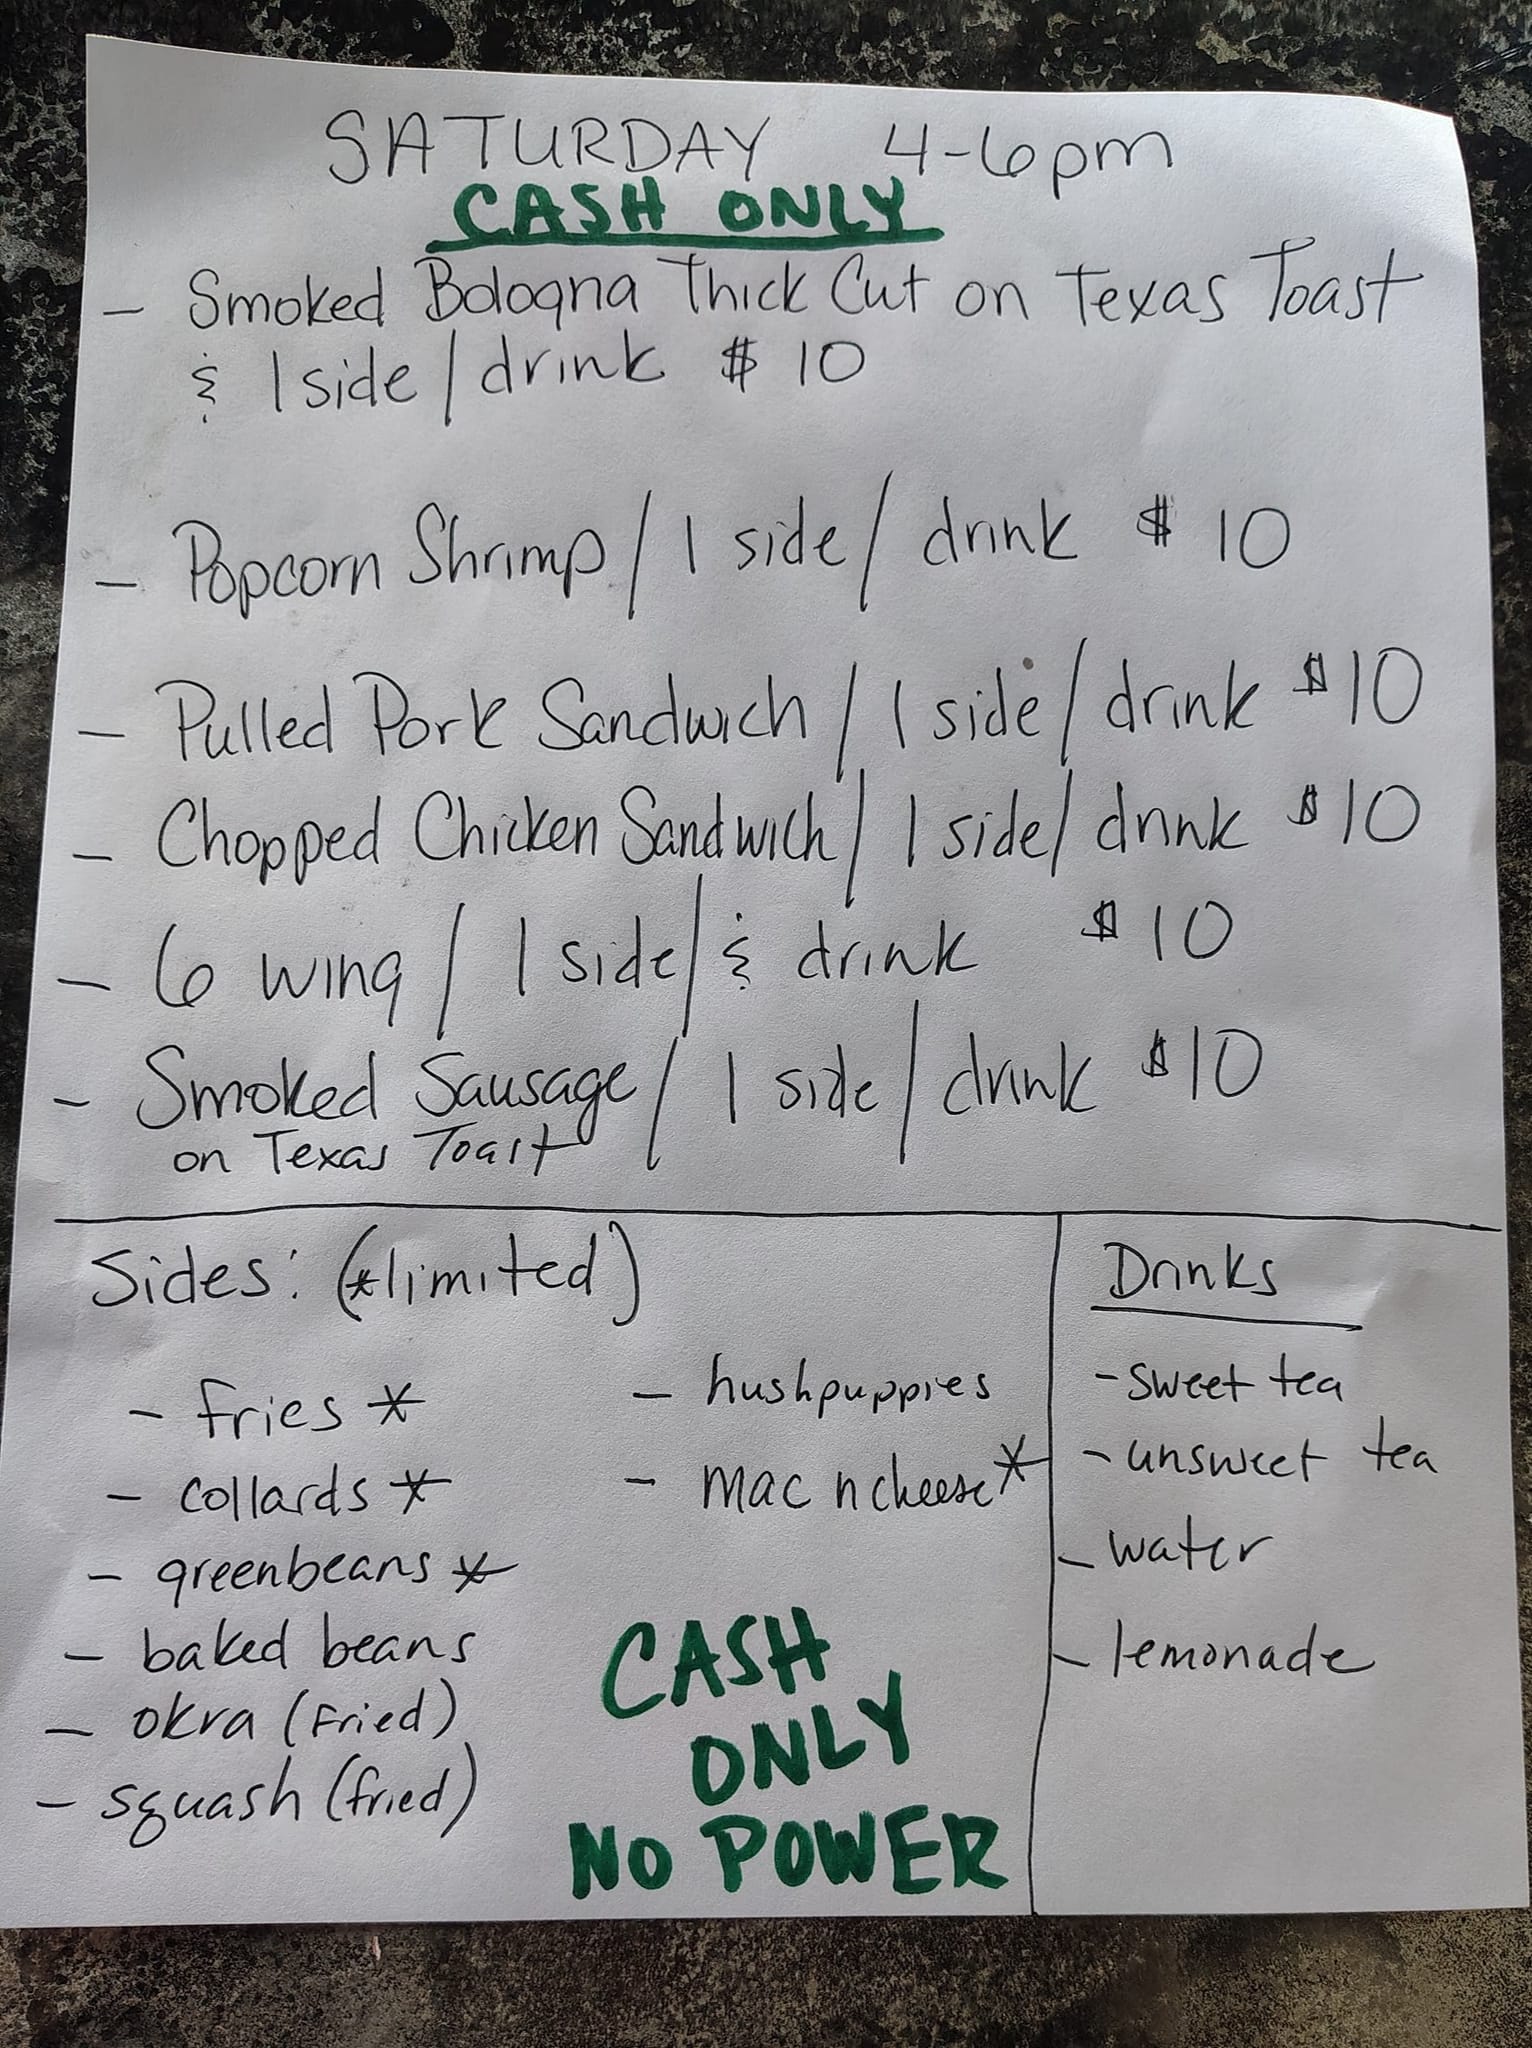 SATURDAY 4-6pm
CASH ONLY
- Smoked Bologna Thick Cut on Texas Toast
& 1 side / drink $ 10
- Popcorn Shrimp / 1 side / drink $ 10
- Pulled Pork Sandwich / 1 side / drink $10
- Chopped Chicken Sandwich / 1 side / drink $10
- 6 wing / 1 side / & drink $10
- Smoked Sausage / 1 side / drink $10
on Texas Toast
Sides: (*limited)
- fries *
- collards *
- greenbeans *
- baked beans
- okra (fried)
- squash (fried)
- hushpuppies
- mac n cheese *
CASH
ONLY
NO POWER
Drinks
- sweet tea
- unsweet tea
- water
- lemonade